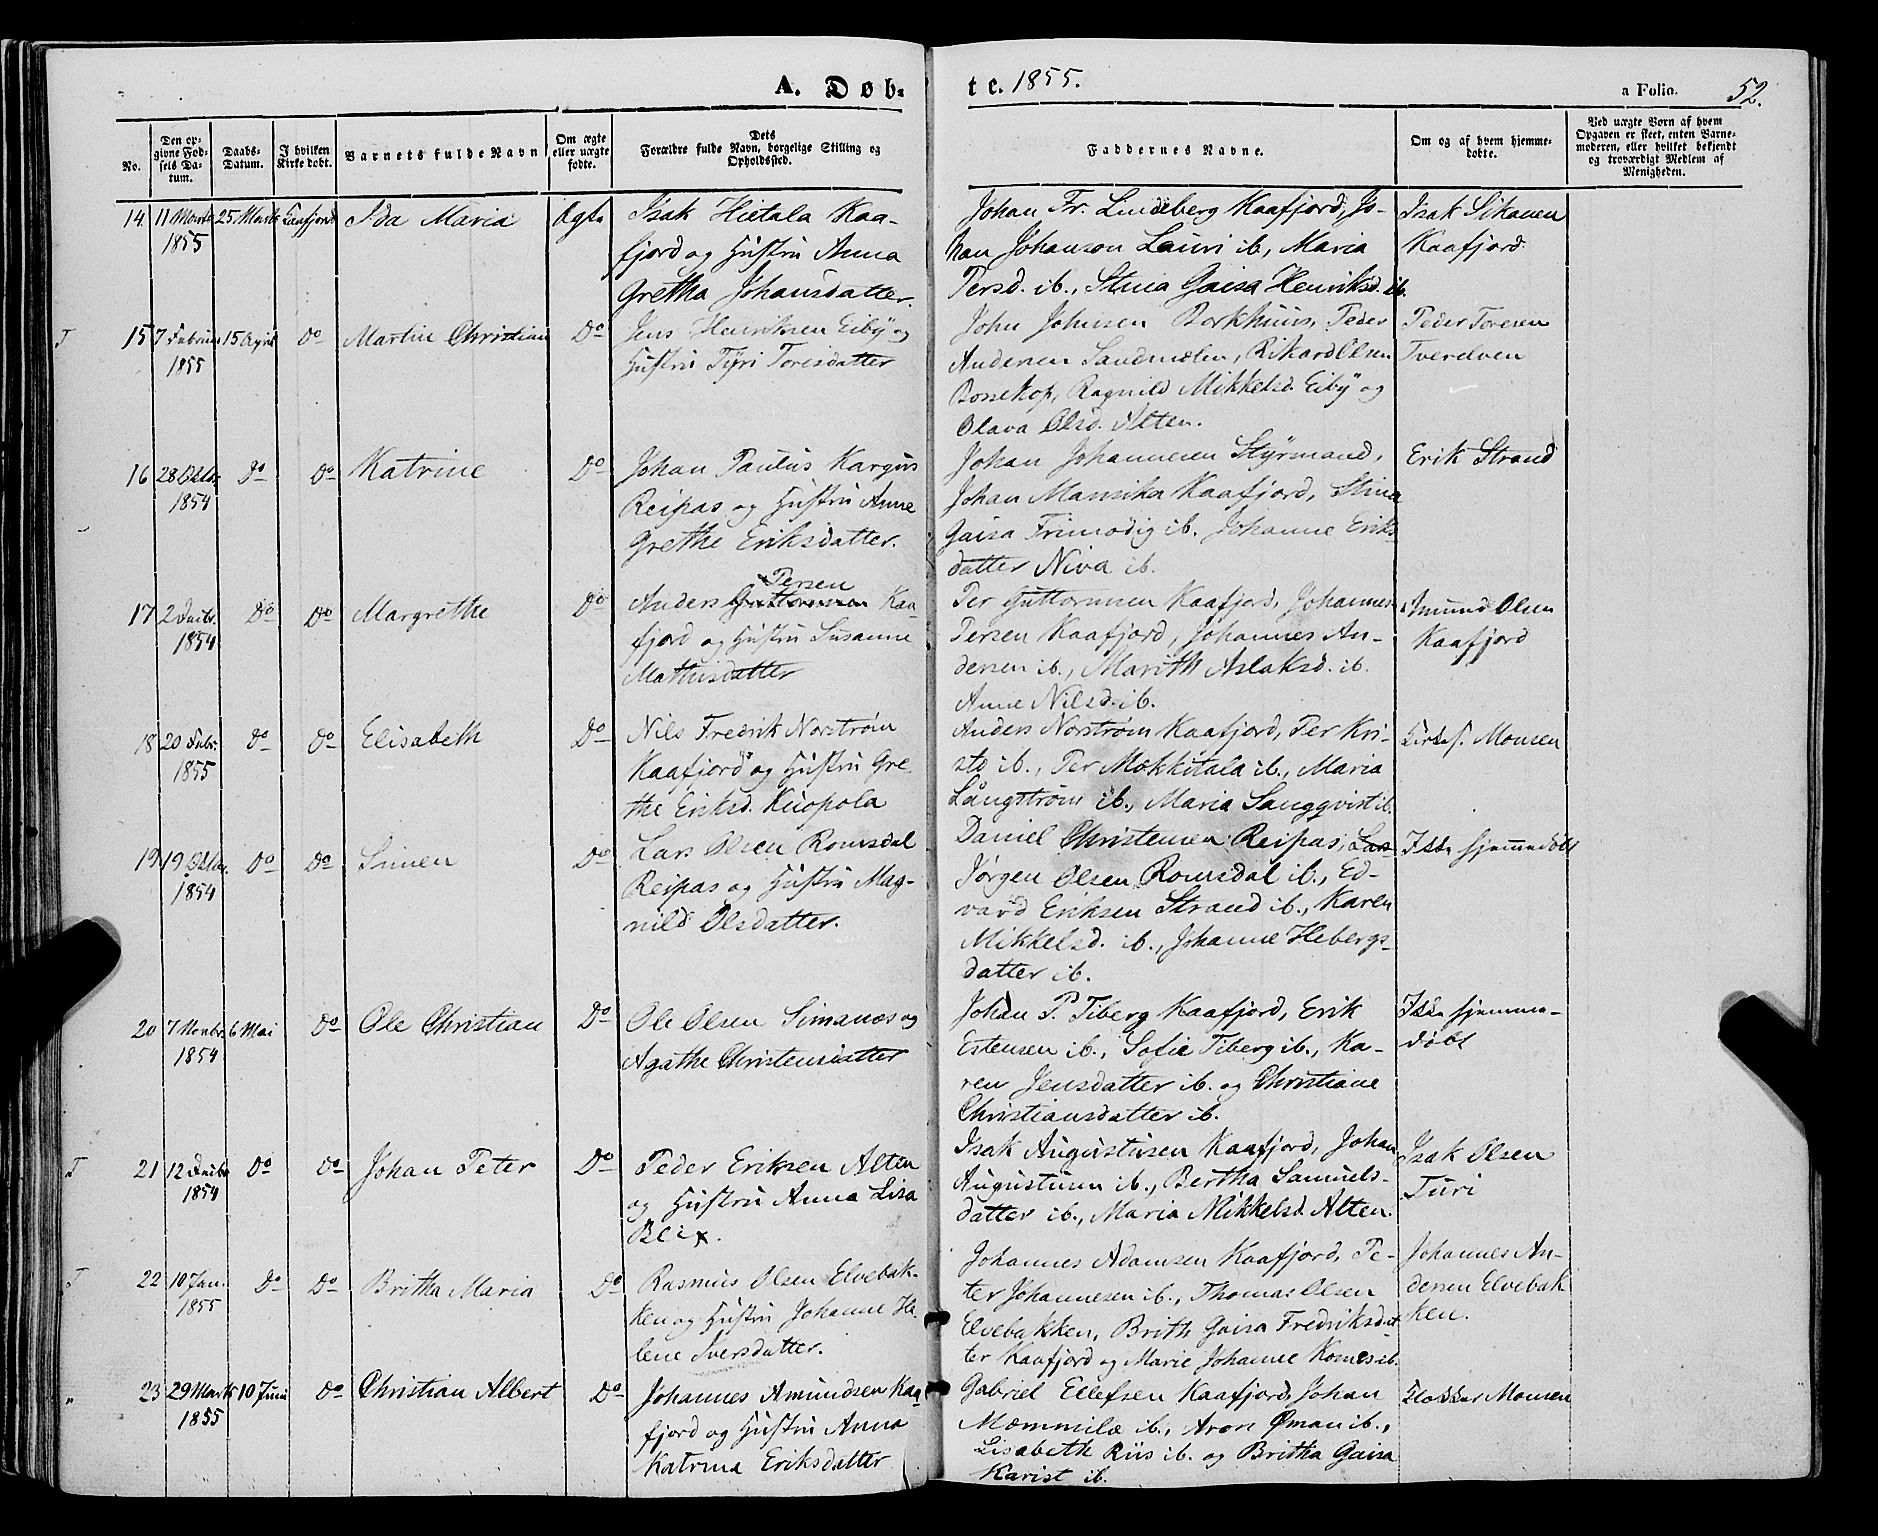 A. Døb-
te. 1855.
a Folio. 52.
No.
Den op-
givne Fød-
sels Da-
tum.
Daabs-
Datum.
I hvilken
Kirke døbt.
Barnets fulde Navn
Om ægte
eller uægte
fødte.
Dets
Forældre fulde Navn, borgelige Stilling og
Opholdssted.
Faddernes Navne.
Om og af hvem hjemme-
døbte.
Ved uægte Børn af hvem
Opgaven er skeet, enten Barne-
moderen, eller hvilket bekjendt
og troværdigt Medlem af
Menigheden.
14. 11 Marts 25 Marts Kaafjord Ida Maria Ægte
1855
Isak Hietala Kaa-
fjord og Hustru Anna
Gretha Johansdatter.
Johan Fr. Lindeberg Kaafjord, Jo-
han Johanson Lauri ib., Maria
Persd. ib., Stina Gaisa Henriksd. ib.
Isak Sikanen
Kaafjord.
T 15 7 Februar 15 April do Martin Christian Do
1855
Jens Henriksen Eiby og
Hustru Tyri Toresdatter
John Johnsen Borkhuus, Peder
Andersen Sandmælen, Rikard Olsen
Bossekop, Ragnild Mikkelsd. Eiby og
Olava Olsd. Alten.
Peder Toresen
Tverelven
16 28 Oktbr. Do Do Katrine Do
1854
Johan Paulus Kargus
Reipas og Hustru Anne
Grethe Eriksdatter.
Johan Johannesen Styrmand,
Johan Mansika Kaafjord, Stina
Gaisa Frimodig ib. Johanne Eriks-
datter Niva ib.
Erik Strand
17 2 Decbr. Do Do Margrethe Do
1854
Persen
Anders Guttormsen Kaa-
fjord og Hustru Susanne
Mathisdatter
Per Guttormsen Kaafjord, Johannes
Persen Kaafjord, Johannes An-
dersen ib., Marith Aslaksd. ib.
Anne Nilsd. ib.
Amund Olsen
Kaafjord
18 20 Febr. Do Do Elisabeth Do
1855
Nils Fredrik Norstrøm
Kaafjord og Hustru Gre
the Eriksd. Kuopola
Anders Norstrøm Kaafjord, Per Kri-
sto ib., Per Mokkitala ib., Maria
Långstrøm ib., Maria Sangqvist ib.
Kirkes. Monsen
19 19 Oktbr. Do Do Simen Do
1854
Lars Olsen Romsdal
Reipas og Hustru Mag-
nild Olsdatter.
Daniel Christensen Reipas, Lars
Jørgen Olsen Romsdal ib., Ed-
vard Eriksen Strand ib., Karen
Mikkelsd. ib., Johanne Hebergs-
datter ib.
Ikke hjemmedøbt
20 7 Novbr. 6 Mai Do Ole Christian Do
1854
Ole Olsen Simanes og
Agathe Christensdatter
Johan P. Tiberg Kaafjord, Erik
Estensen ib., Sofie Tiberg ib., Ka-
ren Jensdatter ib. og Christiane
Christiansdatter ib.
Ikke hjemme-
døbt
T 21 12 Decbr. Do Do Johan Peter Do
1854
Peder Eriksen Alten
og Hustru Anna Lisa
Blix.
Isak Augustusen Kaafjord, Johan
Augustusen ib., Bertha Samuels-
datter ib., Maria Mikkelsd. Alten.
Isak Olsen
Turi
T 22 10 Jan. Do Do Britha Maria Do
1855
Rasmus Olsen Elvebak-
ken og Hustru Johanne He
lene Iversdatter.
Johannes Adamsen Kaafjord, Pe-
ter Johannesen ib., Thomas Olsen
Elvebakken, Brith Gaisa Fredriksdat
ter Kaafjord og Marie Johanne Komes ib.
Johannes An-
dersen Elvebak-
ken.
„ 23 29 Marts 10 Juni Do Christian Albert Do
1855
Johannes Amundsen Kaa
fjord og Hustru Anna
Katrina Eriksdatter
Gabriel Ellefsen Kaafjord, Johan
Mæmmilæ ib., Aron Øman ib.,
Lisabeth Riis ib. og Britha Gaisa
Karist ib.
Klokker Monsen